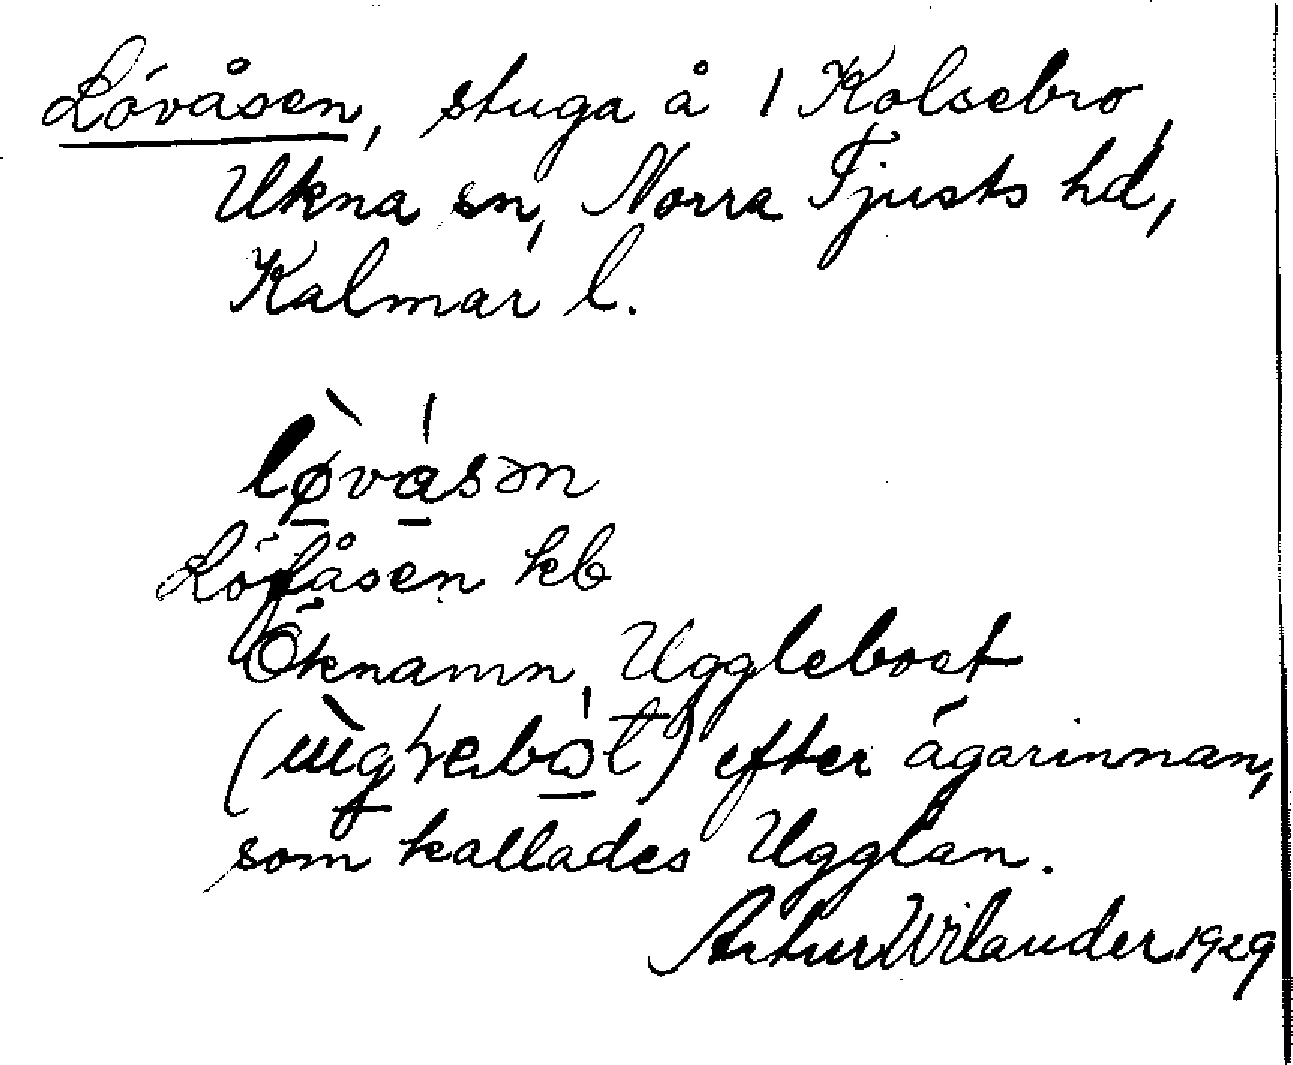 Lövåsen, stuga å 1 Kolsebro,
Ukna sn, Norra Tjusts hd,
Kalmar l.
lø̀vásən
Löfåsen kb
Öknamn, Uggleboet
() efter ägarinnan,
som kallades Ugglan.
Artur Wilander 1929